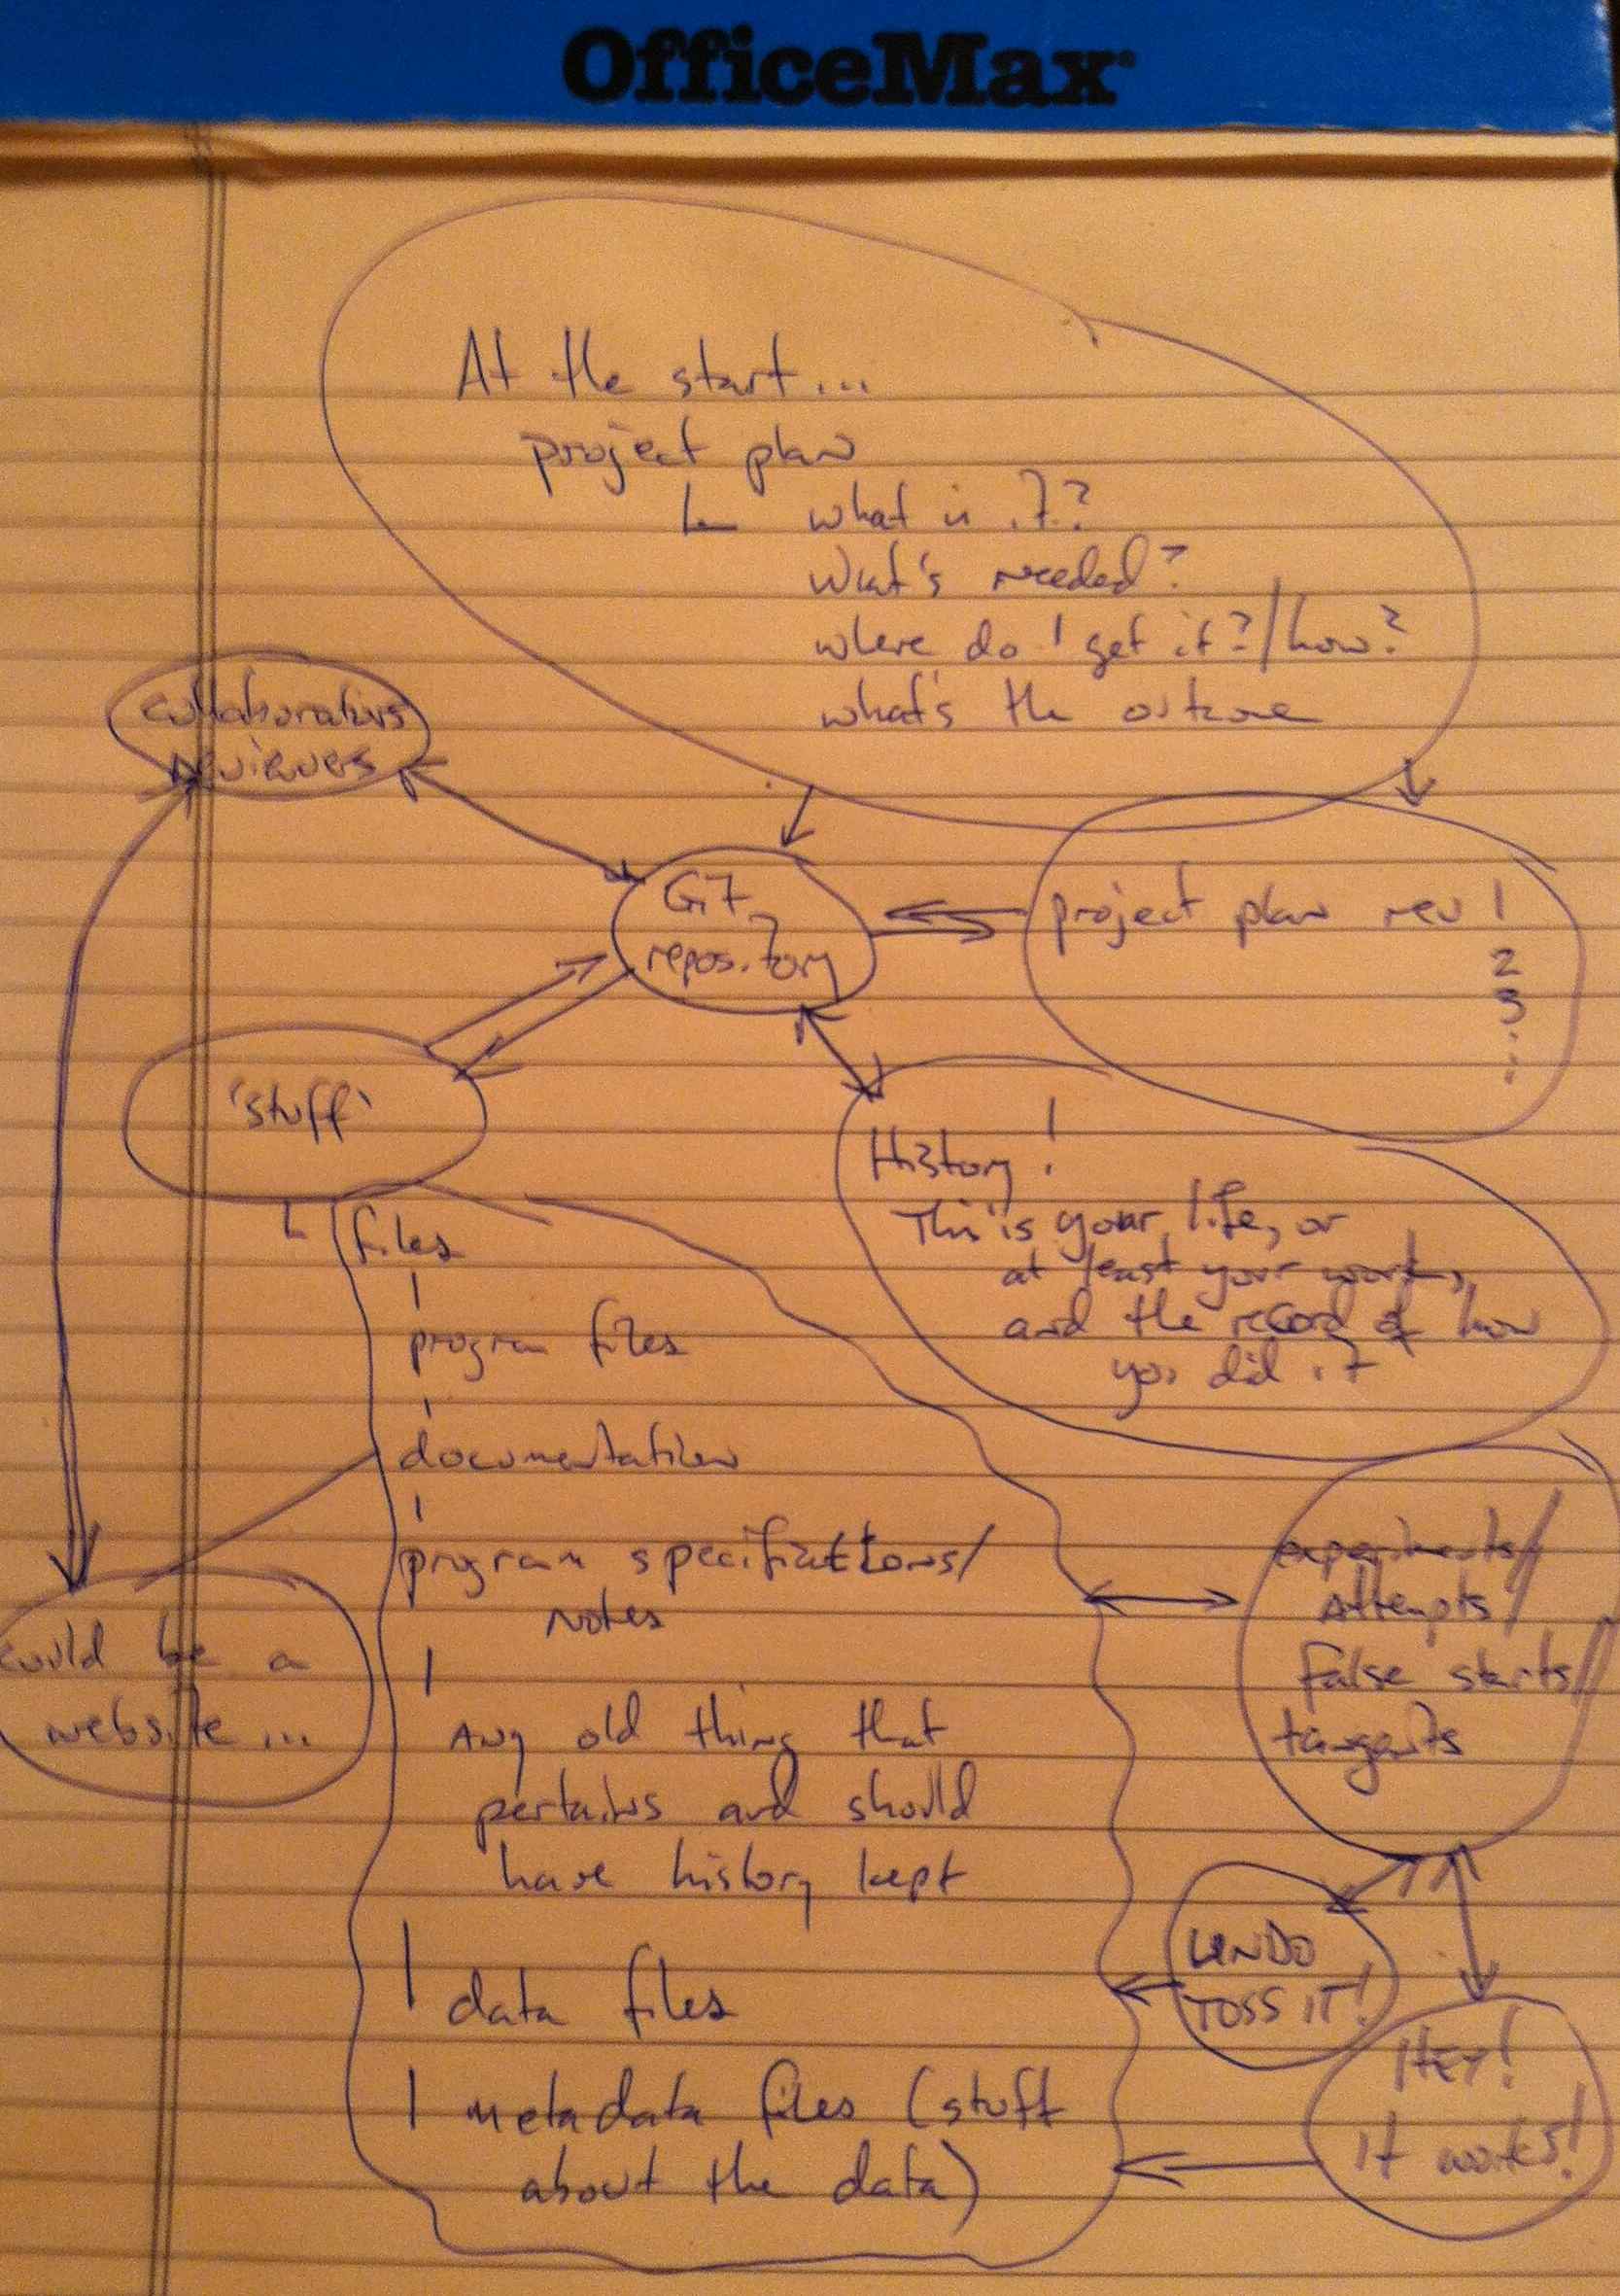 OfficeMax
At the start...
project plan
what is it?
What's needed?
where do I get it?/how?
what's the outcome
collaborators
reviewers
Git
repository
project plan rev 1
2
3
'stuff'
History!
This is your life, or
at least your work,
and the record of how
you did it
files
program files
documentation
program specifications/
notes
Any old thing that
pertains and should
have history kept
data files
metadata files (stuff
about the data)
could be a
website...
experiments/
Attempts/
False starts/
tangents
UNDO
TOSS IT!
HEY!
it works!